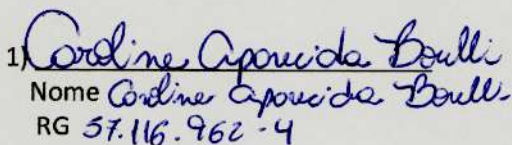 1) Caroline Aparecida Boulli
Nome Caroline Aparecida Boulli
RG 57.116.962-4